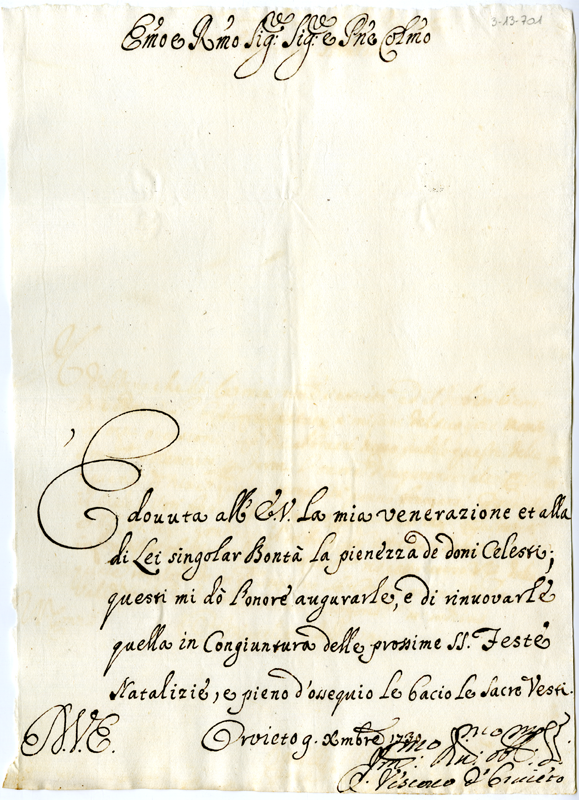 3-13-701
Emo e Rmo Sig.r Sig.r e Pne Colmo
È dovuta all' E.V. la mia venerazione et alla
di Lei singolar Bontà la pienezza de doni Celesti;
questi mi dò l'onore augurarle, e di rinuovarle
quella in Congiuntura delle prossime SS. Feste
Natalizie, e pieno d'ossequio le bacio le Sacre Vesti.
Orvieto 9. Xmbre
Vescovo d'Orvieto